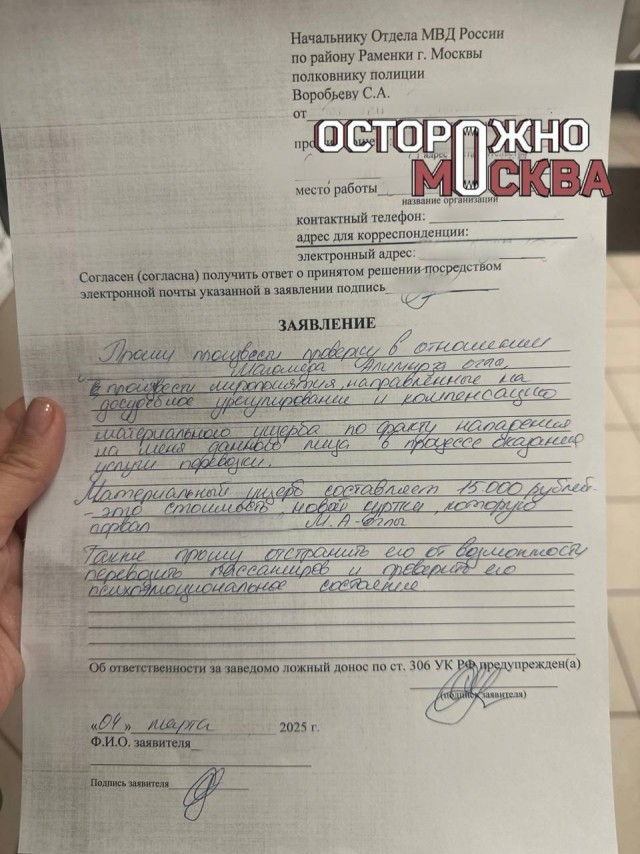 Начальнику Отдела МВД России
по району Раменки г. Москвы
полковнику полиции
Воробьеву С.А.
от
ОСТОРОЖНО
МОСКВА
место работы
название организации
контактный телефон:
адрес для корреспонденции:
электронный адрес:
Согласен (согласна) получить ответ о принятом решении посредством
электронной почты указанной в заявлении подпись
ЗАЯВЛЕНИЕ
Прошу произвести проверку в отношении
Магамеда Алимурза оглы,
произвести мероприятия, направленные на
досудебное урегулирование и компенсацию
материального ущерба по факту нападения
на меня данного лица в процессе оказания
услуги перевозки.
Материальный ущерб составляет 15.000 рублей-
- это стоимость новой куртки, которую
порвал М. А-оглы
Также прошу отстранить его от возможности
перевозить пассажиров и проверить его
психоэмоциональное состояние
Об ответственности за заведомо ложный донос по ст. 306 УК РФ предупрежден(а)
(подпись заявителя)
«04» марта 2025 г.
Ф.И.О. заявителя
Подпись заявителя